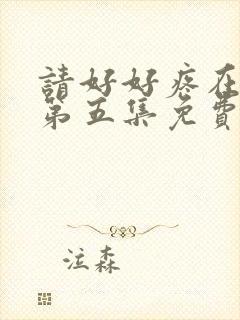 請好好疼在
第五集免費
泣森